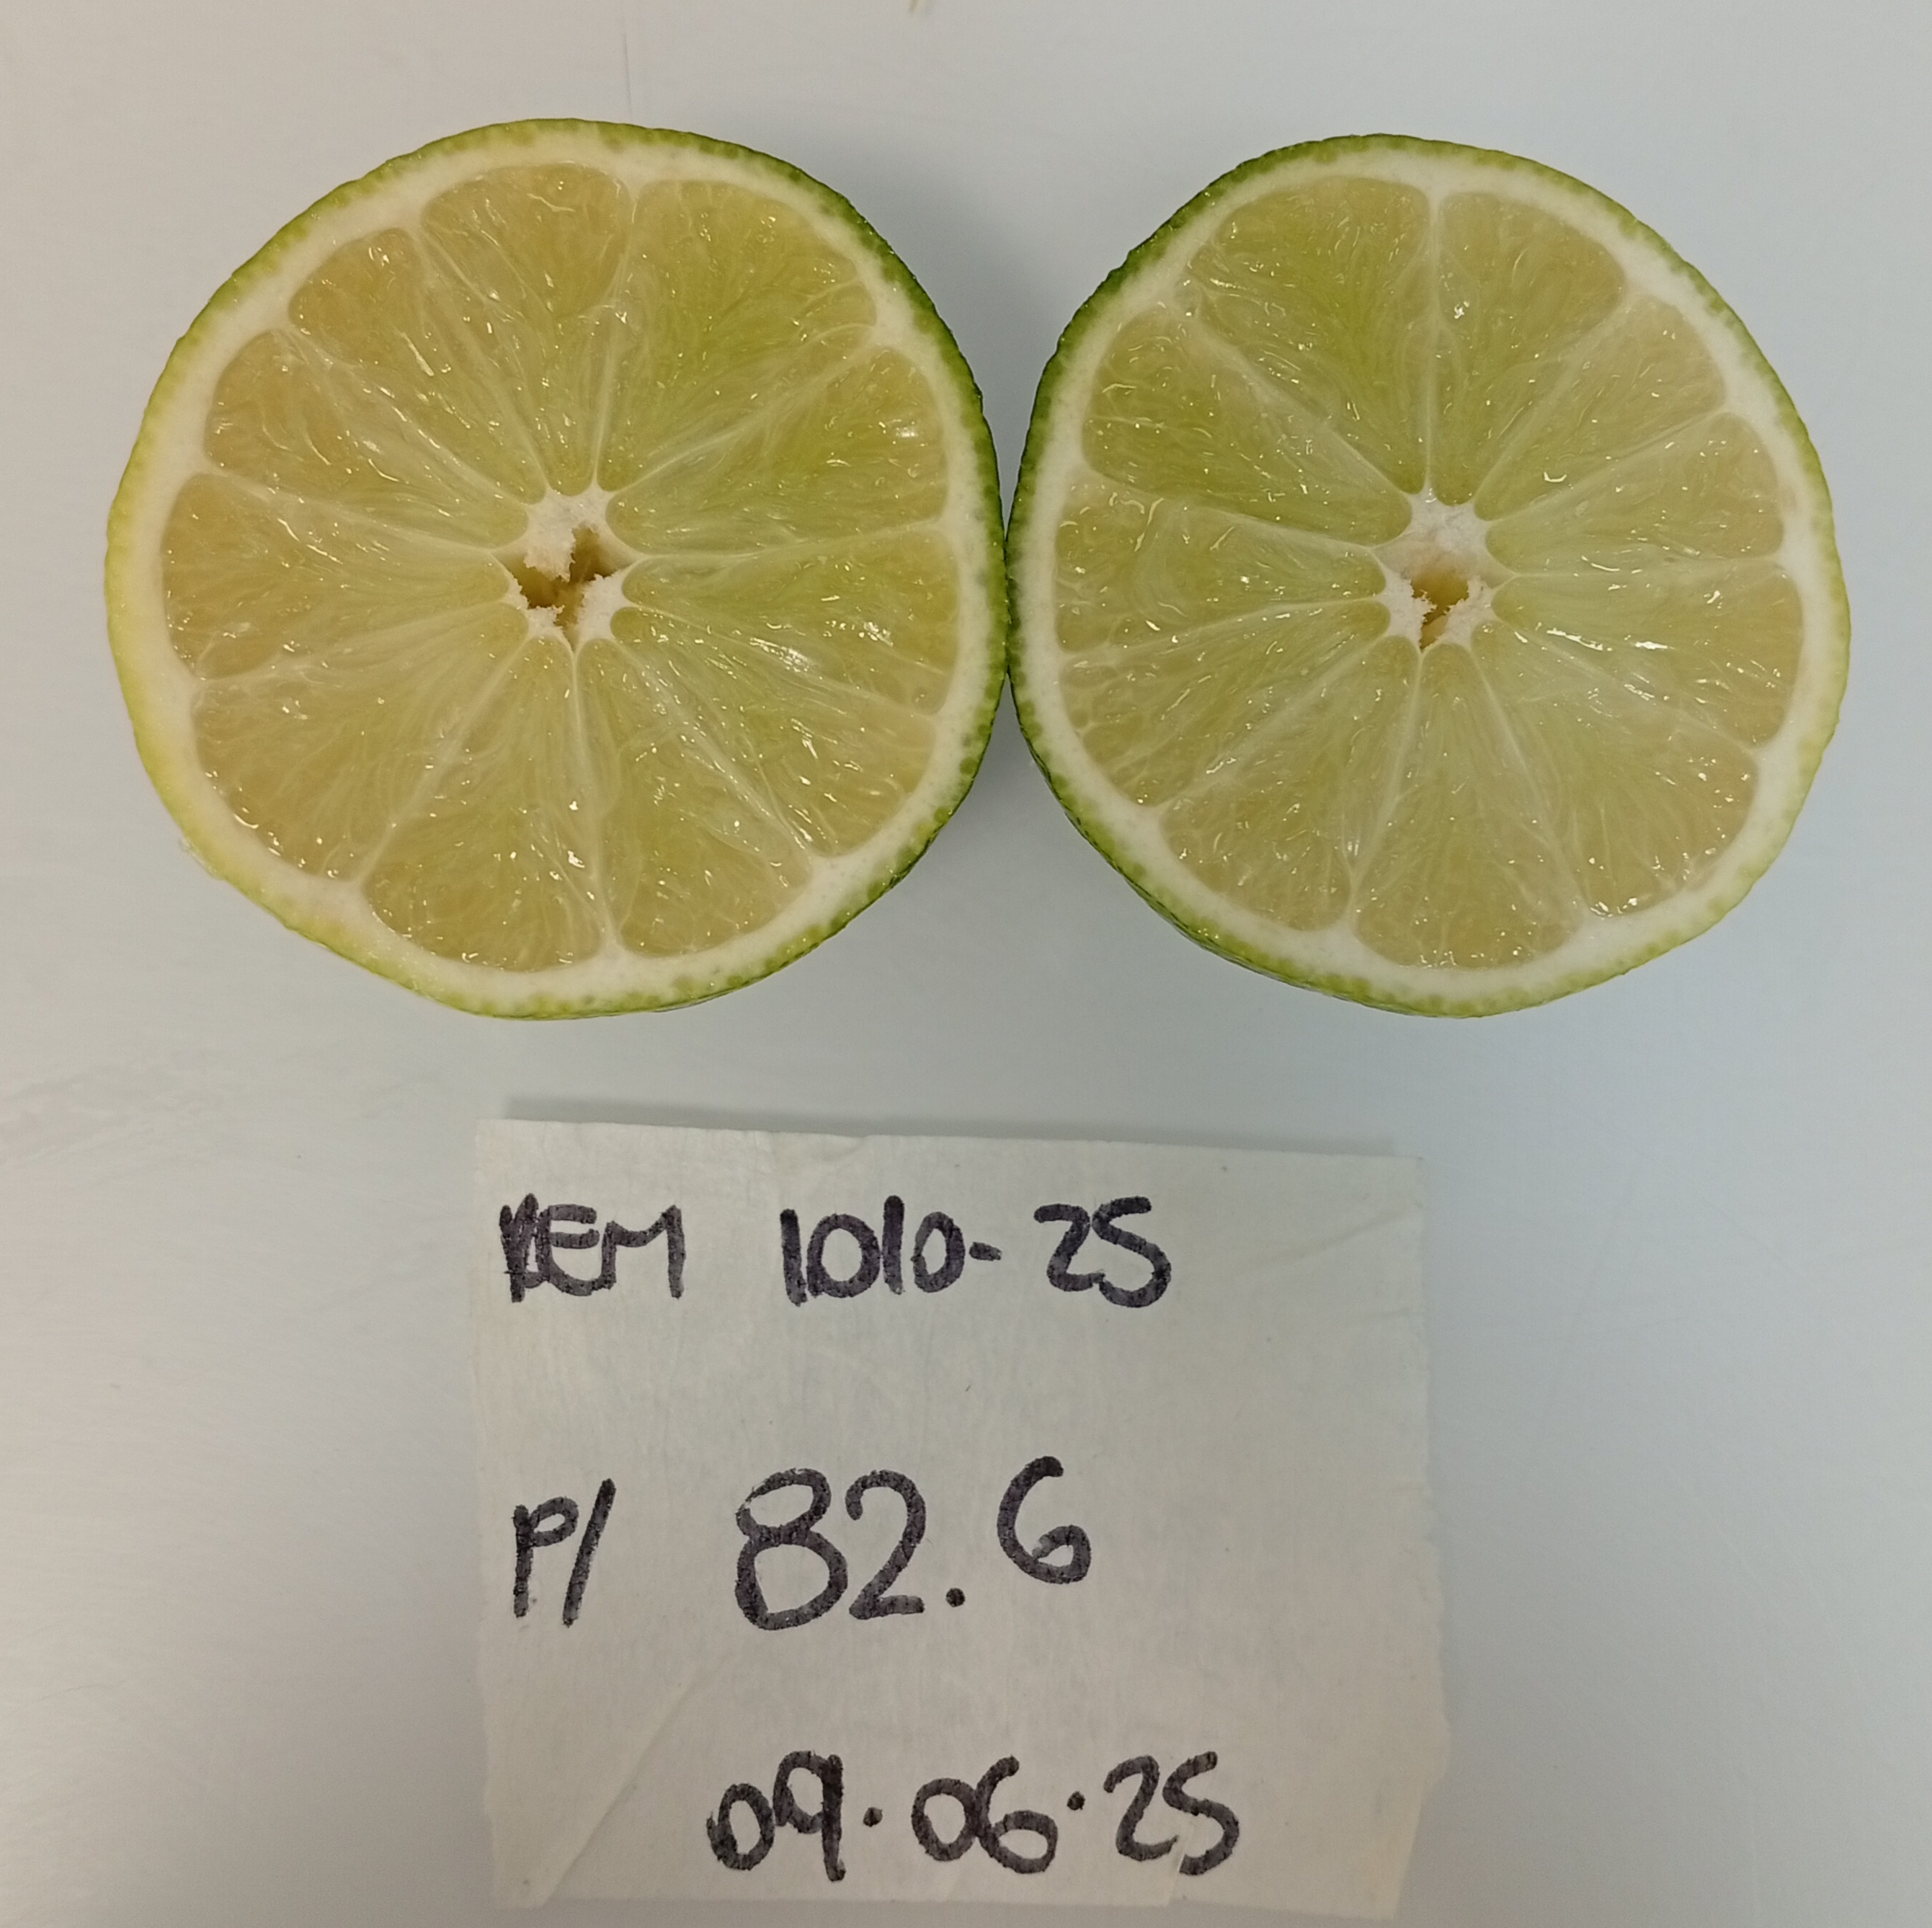 REM 1010-25
P/ 82.6
09.06.25